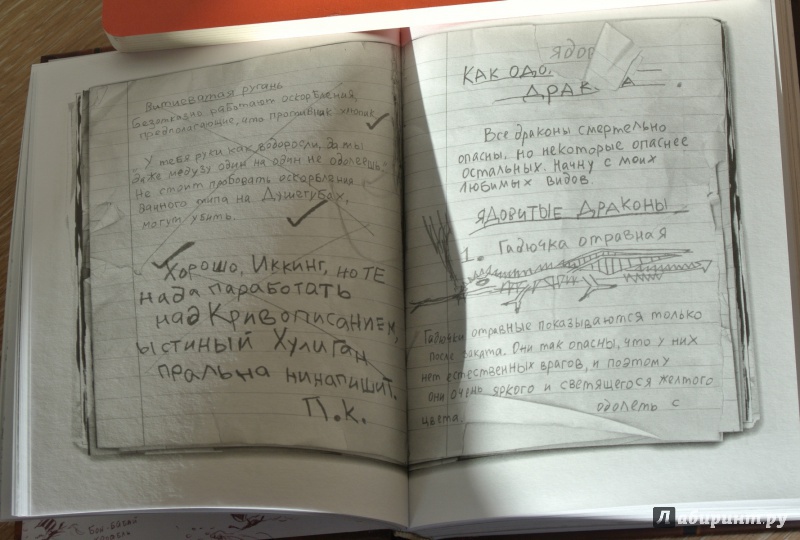 Витиеватая ругань
Безотказно работают оскорбления,
предполагающие, что противник хлюпик
У тебя руки как водоросли, да ты
даже медузу один на один не одолеешь.
Не стоит пробовать оскорбления
данного типа на Душегубах,
могут убить.
Хорошо, Иккинг, но ТЕ
нада паработать
над Кривописанием,
ыстиный Хулиган
пральна нинапишит.
П.К.
Ядо
КАК ОДО
ДРАК А .
Все драконы смертельно
опасны, но некоторые опаснее
остальных. Начну с моих
любимых видов.
ЯДОВИТЫЕ ДРАКОНЫ
1. Гадючка отравная
Гадючки отравные показываются только
после заката. Они так опасны, что у них
нет естественных врагов, и поэтому
они очень яркого и светящегося желтого
цвета. одолеть с
Лабиринт.ру